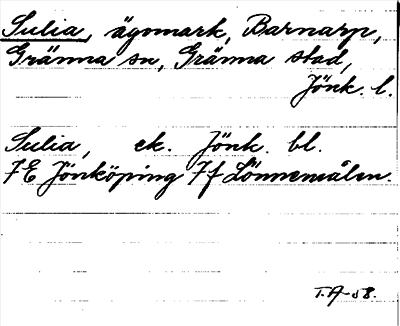 Sulia, ägomark, Barnarp,
Gränna sn, Gränna stad,
Jönk. l.
Sulia, ek. Jönk. bl.
7E Jönköping 7f Lönnemålen.
T.A-58.